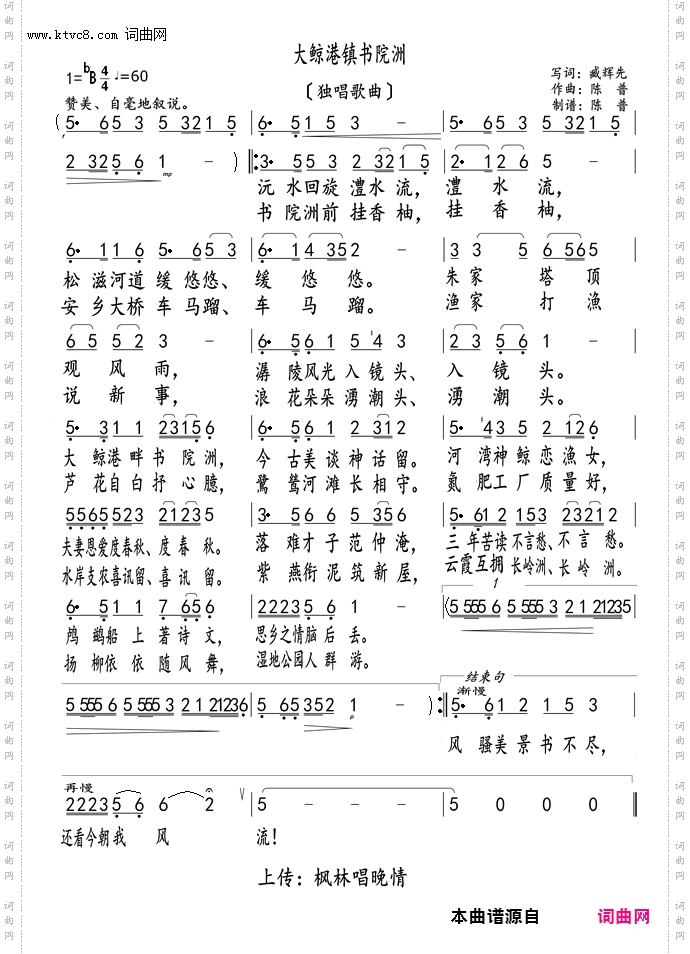 www.ktvc8.com 词曲网
大鲸港镇书院洲
1=bB 4/4 ♩=60
〔独唱歌曲〕
写词：臧辉先
作曲：陈 普
制谱：陈 普
赞美、自毫地叙说。
(5· 6 5 3 5 3 2 1 5 | 6· 5 1 5 3 - | 5· 6 5 3 5 3 2 1 5 |
f
2 3 2 5 6 1 - ) ‖: 3· 5 5 3 2 3 2 1 5 | 2· 1 2 6 5 - |
mp
沅 水回旋 澧水 流， 澧 水 流，
书 院洲前 挂香 柚， 挂 香 柚，
6· 1 1 6 5· 6 5 3 | 6· 1 4 3 5 2 - | 3 3 5 6 5 6 5 |
松 滋河道 缓 悠悠、 缓 悠 悠。 朱 家 塔 顶
安 乡大桥 车 马蹓、 车 马 蹓。 渔 家 打 渔
6 5 5 2 3 - | 6· 5 6 1 5 4 3 | 2 3 5 6 1 - |
观 风 雨， 潺 陵风光 入 镜 头、 入 镜 头。
说 新 事， 浪 花朵朵 湧 潮 头、 湧 潮 头。
5· 3 1 1 2 3 1 5 6 | 6· 5 6 1 2 3 1 2 | 5· 4 3 5 2 1 2 6 |
大 鲸港畔 书 院 洲， 今 古美谈 神 话 留。 河 湾神鲸 恋 渔 女，
芦 花自白 抒 心 臆， 鷺 鸶河滩 长 相 守。 氮 肥工厂 质 量 好，
5 5 6 5 5 2 3 2 1 2 3 5 | 3· 5 6 6 5 3 5 6 | 5· 6 1 2 1 5 3 2 3 2 1 2 |
夫妻恩爱度春秋、度 春 秋。 落 难才子 范 仲 淹， 三 年苦读 不言愁、不 言 愁。
水岸支农喜讯留、喜 讯 留。 紫 燕衔泥 筑 新 屋， 云霞互拥 长岭洲、长 岭 洲。
1
6· 5 1 1 7 6 5 6 | 2 2 2 3 5 6 1 - | (5 5 5 5 6 5 5 5 5 3 2 1 2 1 2 3 5 |
鸬 鹚船 上 著 诗 文， 思乡之情脑 后 丢。
扬 柳依 依 随 风 舞， 湿地公园人 群 游。
结束句
渐慢
5 5 5 5 6 5 5 5 5 3 2 1 2 1 2 3 6 | 5 6 5 3 5 2 1 - ) :‖ 5· 6 1 2 1 5 3 |
p
风 骚美 景 书 不 尽，
再慢
2 2 2 3 5 6 6 2 V | 5 - - - | 5 0 0 0 ‖
还看今朝我 风 流！
上传：枫林唱晚情
本曲谱源自 词曲网